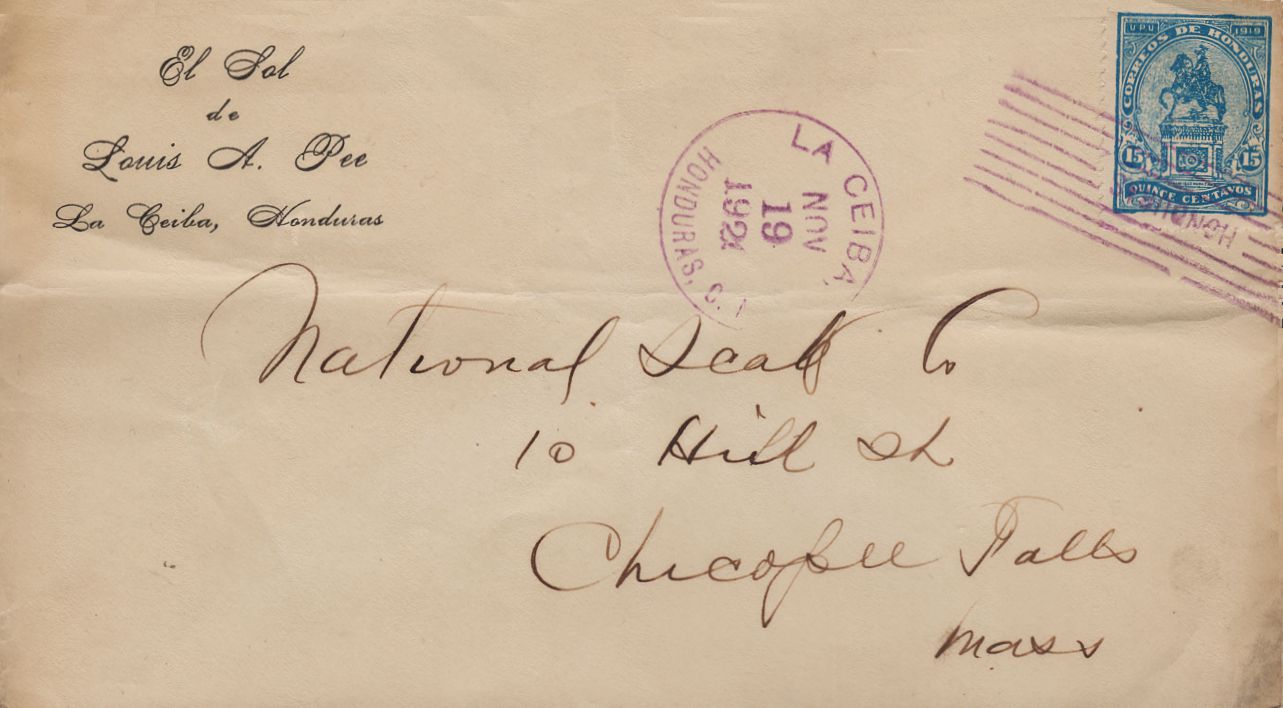 El Sol
de
Louis A. Pee
La Ceiba, Honduras
LA CEIBA,
NOV
19
192
HONDURAS,
UPU 1919
CORREOS DE HONDURAS
15 15
QUINCE CENTAVOS
HONDURAS
National Seal Co
10 Hill St
Chicopee Falls
Mass